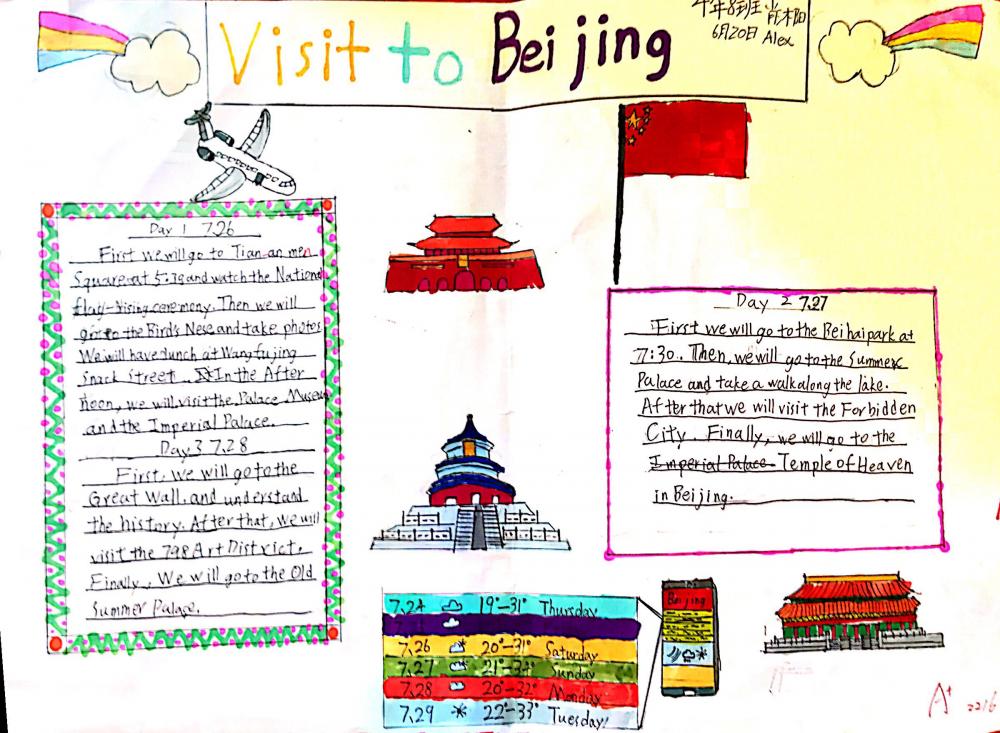 Visit to Beijing
6月20日 Alex
Day 1 7.26
First we will go to Tian an men
Square at 5:19 and watch the National
flag-rising ceremony. Then we will
go to the Bird's Nese and take photos
We will have lunch at Wangfujing
Snack Street. In the After
noon, we will visit the Palace Museum
and the Imperial Palace.
Day 3 7.28
First, we will go to the
Great Wall, and understand
the history. After that, we will
visit the 798 Art District.
Finally, We will go to the Old
Summer Palace.
Day 2 7.27
First we will go to the Beihai park at
7:30. Then, we will go to the Summer
Palace and take a walk along the lake.
After that we will visit the Forbidden
City. Finally, we will go to the
Imperial Palace Temple of Heaven
in Beijing.
7.24 19°-31° Thursday
7.26 20°-31° Saturday
7.27 21°-34° Sunday
7.28 20°-32° Monday
7.29 22°-33° Tuesday!
Beijing
A+